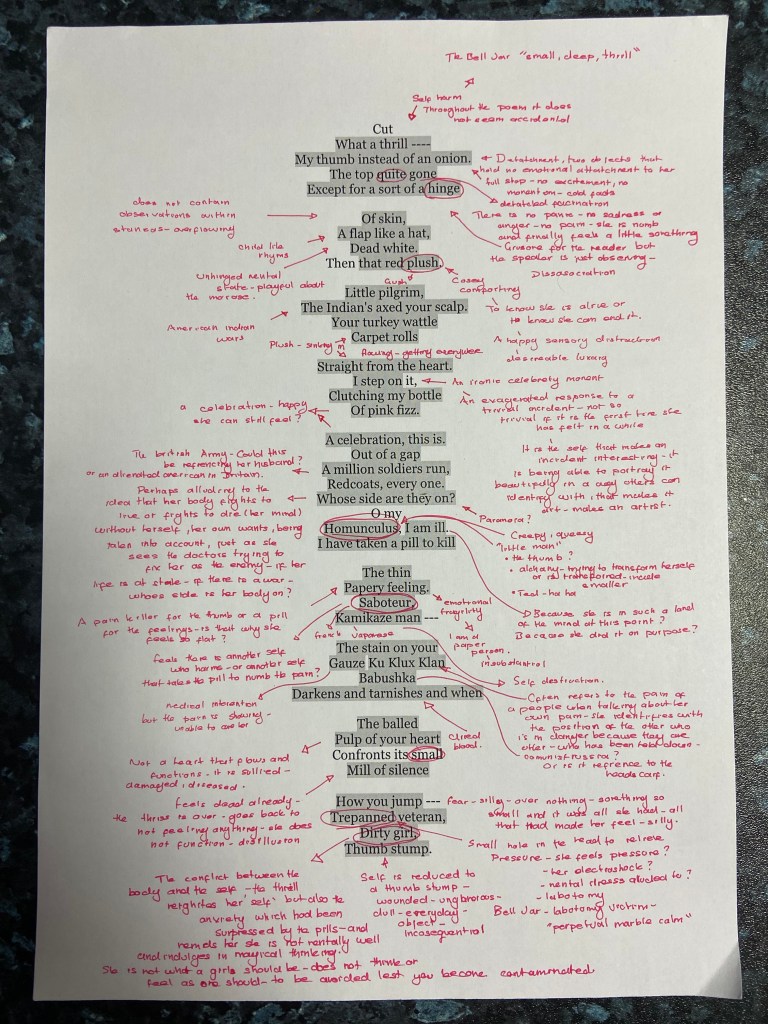 The Bell Jar "small, deep, thrill"
Self harm
Throughout the poem it does
not seem accidental
Cut
What a thrill ----
My thumb instead of an onion.
The top quite gone
Except for a sort of a hinge
Of skin,
A flap like a hat,
Dead white.
Then that red plush.
Little pilgrim,
The Indian's axed your scalp.
Your turkey wattle
Carpet rolls
Straight from the heart.
I step on it,
Clutching my bottle
Of pink fizz.
A celebration, this is.
Out of a gap
A million soldiers run,
Redcoats, every one.
Whose side are they on?
O my
Homunculus, I am ill.
I have taken a pill to kill
The thin
Papery feeling.
Saboteur,
Kamikaze man ---
The stain on your
Gauze Ku Klux Klan
Babushka
Darkens and tarnishes and when
The balled
Pulp of your heart
Confronts its small
Mill of silence
How you jump ---
Trepanned veteran,
Dirty girl,
Thumb stump.
does not contain
observations within
stanzas - overflowing
child like
rhyms
Unhinged mental
state - playful about
the morose.
American indian
wars
Plush - sinking in
a celebration - happy
she can still feel?
The british Army - Could this
be referencing her husband?
or an alienated american in Britain.
Perhaps alluding to the
idea that her body fights to
live or fights to die (her mind)
without herself, her own wants, being
taken into account, just as she
sees the doctors trying to
fix her as the enemy - if her
life is at stake - if there is a war -
whoes side is her body on?
A pain killer for the thumb or a pill
for the feelings - is that why she
feels so flat?
french
Japanese
feels there is another self
who harms - or another self
that takes the pill to numb the pain?
medical intervention
but the pain is showing -
unable to
Not a heart that flows and
functions - it is sullied -
damaged, diseased.
feels dead already -
the thrill is over - goes back to
not feeling anything - she does
not function - disillusion
The conflict between the
body and the self - the thrill
reignites her 'self' but also the
anxiety which had been
surpressed by the pills - and
reminds her she is not mentally well
and indulges in magical thinking.
She is not what a girls should be - does not think or
feel as one should - to be avoided lest you become contaminated
Detatchment, two objects that
hold no emotional attatchment to her
full stop - no excitement, no
- cold facts
detatched fascination
There is no panic - no sadness or
anger - no pain - she is numb
and finally feels a little something
Grusome for the reader but
the speaker is just observing -
Dissasociation
Gush
Cosey
comforting
To know she is alive or
to know she can end it.
A happy sensory distraction
desireable luxury
flowing - getting everywere
An ironic celebrety moment
An exagerated response to a
trivial incident - not so
trivial if it is the first time she
has felt in a while
It is the self that makes an
incident interesting - it
is being able to portray it
beautifully in a way others can
identify with, that makes it
art - makes an artist.
Paranoia?
Creepy, queasy
"little man"
• the thumb?
• alchamy - trying to transform herself
or is transformed - inside
smaller
• Ted - ha ha
Because she is in such a land
of the mind at this point?
Because she did it on purpose?
emotional
fragility
I am a
paper
person.
insubstantial
Self destruction.
Often refers to the pain of
a people when talking about her
own pain - she identifies with
the position of the other who
is in danger because they are
other - who has been held down -
comunist russia?
Or is it refrence to the
headscarf.
Clmed
blood.
fear - silly - over nothing - something so
small and it was all she had - all
that had made her feel - silly.
Small hole in the head to relieve
Pressure - she feels pressure?
- her electroshock?
- mental illness aluded to?
- lobotomy
Bell Jar - labotomy victim -
"perpetual marble calm"
Self is reduced to
a thumb stump -
wounded - unglamorous -
dull - everyday -
object -
incosequential